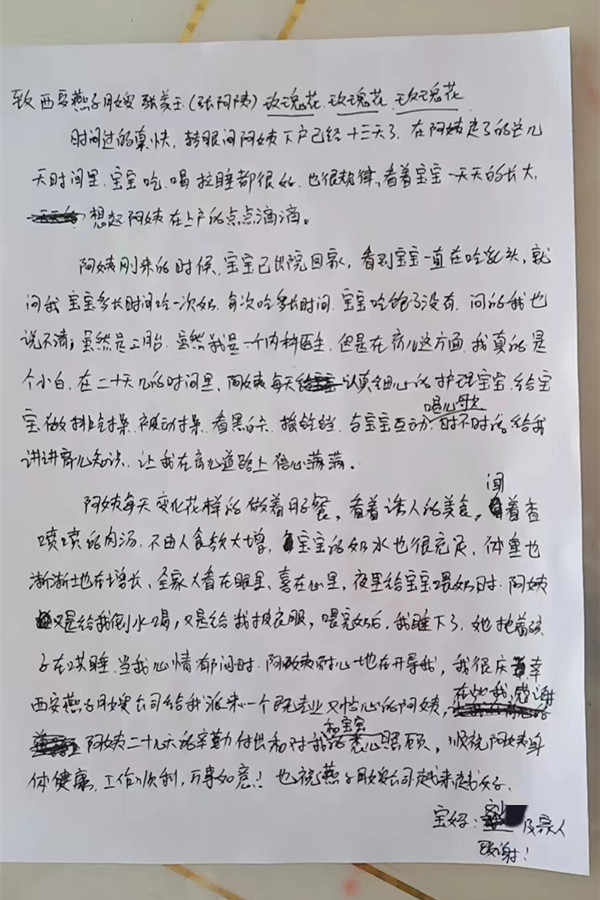 致西安燕子月嫂张美玉(张阿姨)玫瑰花、玫瑰花、玫瑰花
时间过的真快,转眼间阿姨下户已经十三天了,在阿姨走了的这几
天时间里,宝宝吃、喝、拉、睡都很好,也很规律,看着宝宝一天天的长大,
想起阿姨在上户的点点滴滴。
阿姨刚来的时候,宝宝已出院回家,看到宝宝一直在吃乳头,就
问我宝宝多长时间吃一次奶,每次吃多长时间,宝宝吃饱了没有,问的我也
说不清,虽然是二胎,虽然我是一个内科医生,但是在育儿这方面,我真的是
个小白,在二十天几的时间里,阿姨每天认真细心的护理宝宝,给宝
宝做排气操、被动操、看黑白卡、摇铃铛、与宝宝互动唱儿歌,时不时的给我
讲讲育儿知识,让我在育儿道路上信心满满。
阿姨每天变化花样的做着月子餐,看着诱人的美食,闻着香
喷喷的肉汤,不由人食欲大增,宝宝的奶水也很充足,体重也
渐渐地在增长,全家人看在眼里,喜在心里,夜里给宝宝喂奶时,阿姨
又是给我倒水喝,又是给我披衣服,喂完奶后,我睡下了,她抱着孩
子在哄睡,当我心情郁闷时,阿姨耐心地在开导我,我很庆幸
西安燕子月嫂公司给我派来一个既专业又贴心的阿姨,在此我感谢
阿姨二十几天的辛勤付出和对我和宝宝的悉心照顾,祝阿姨身
体健康,工作顺利,万事如意!也祝燕子月嫂公司越来越好。
宝妈:刘 及家人
致谢!